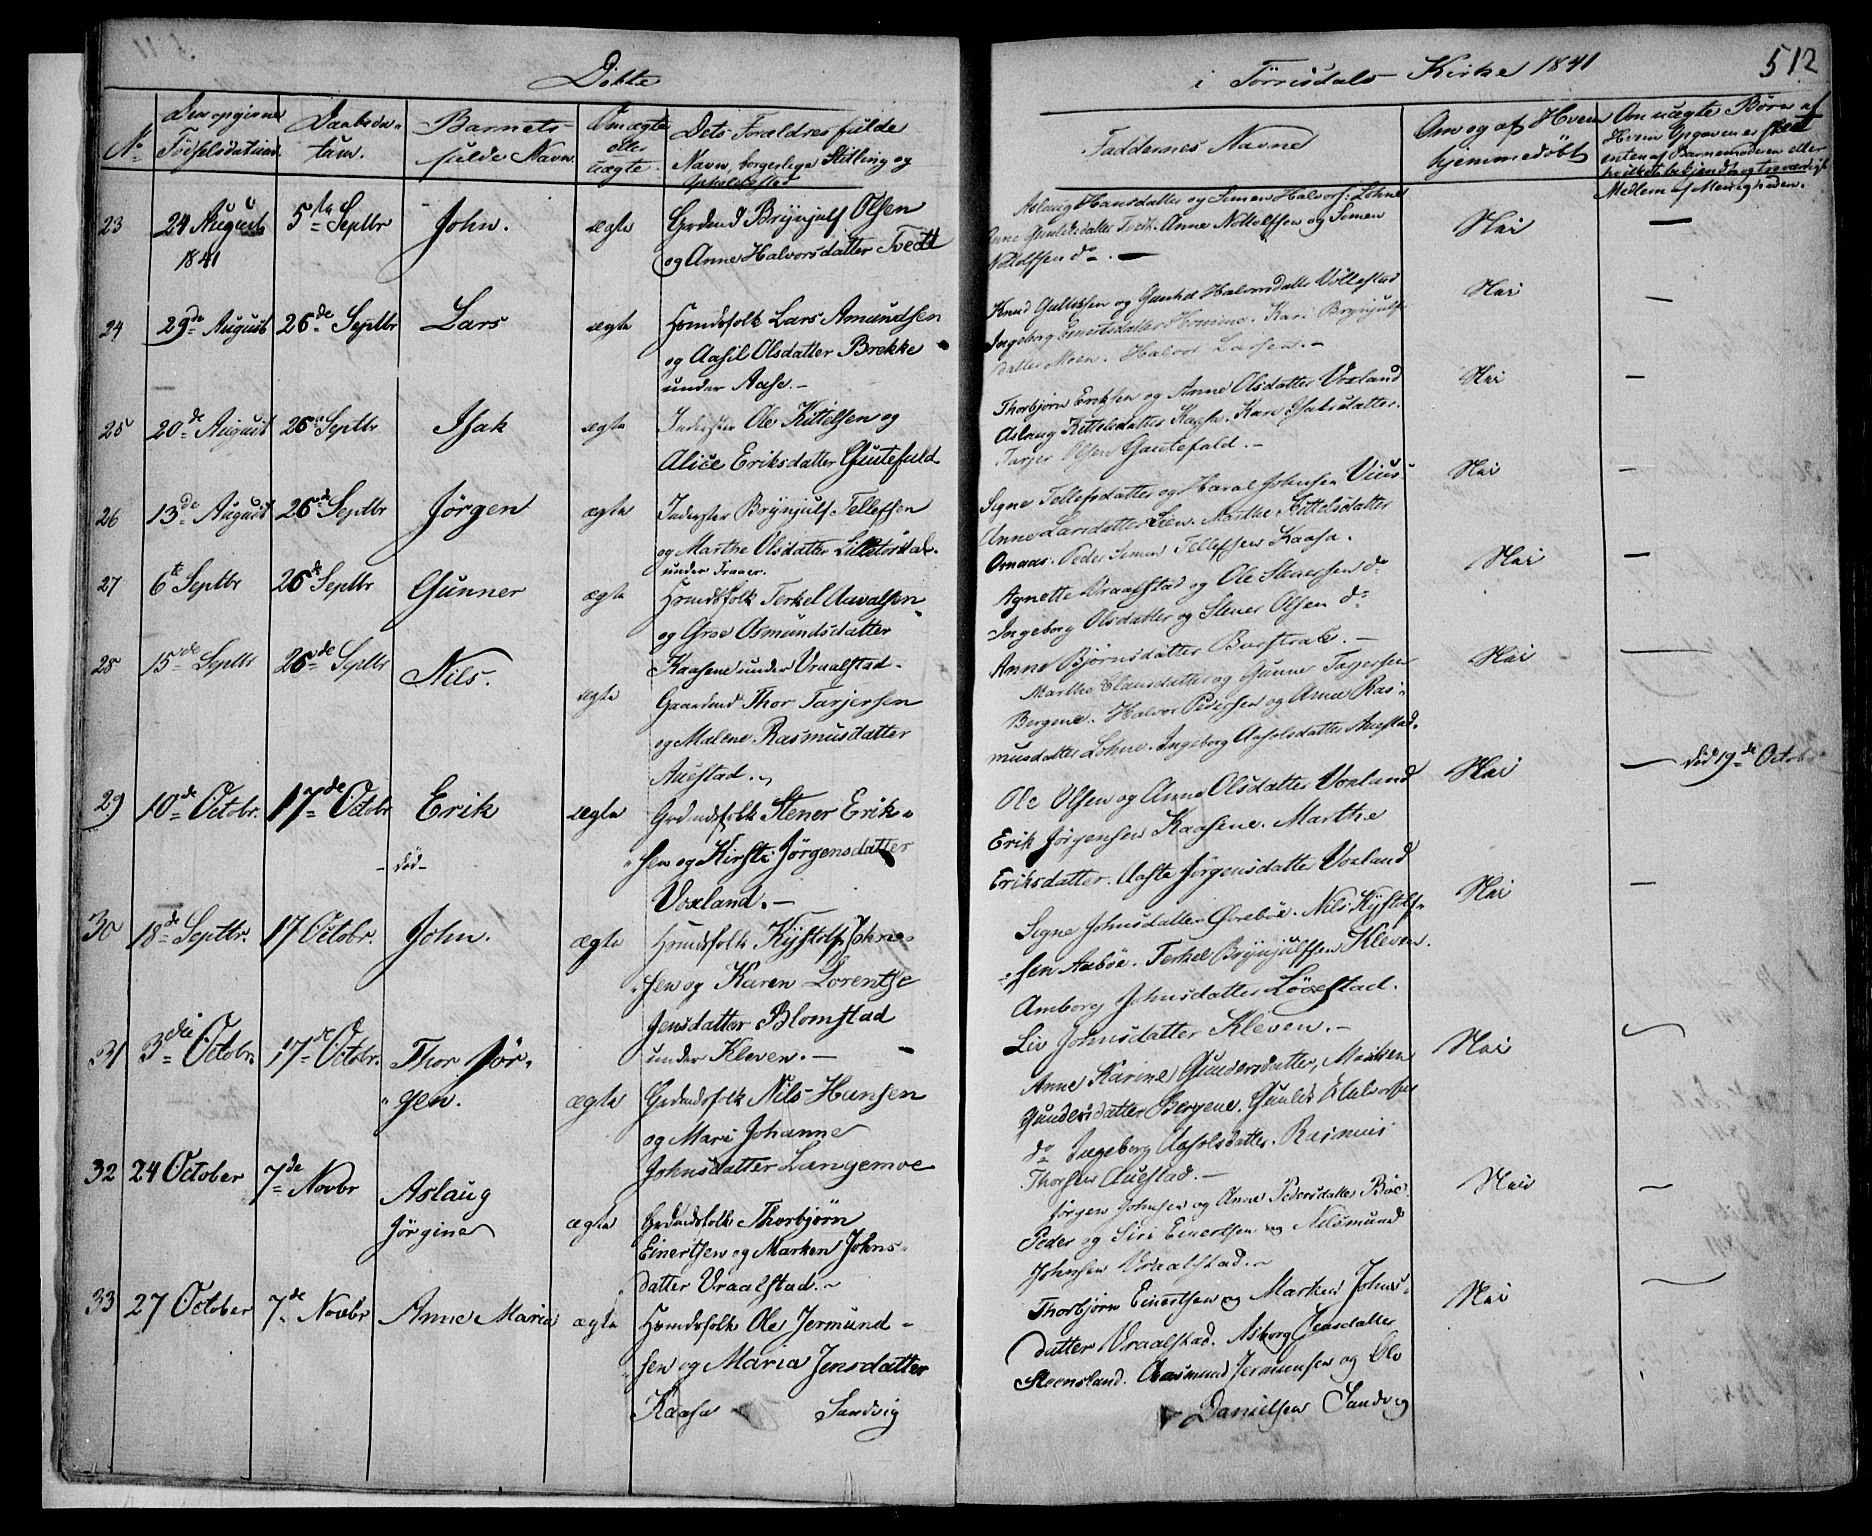 Döbte
i Törrisdals Kirke 1841
512
No
Den opgivne
Födselsdatum.
Daabsda-
tum.
Barnets
fulde Navn.
Om ægte
eller
uægte.
Dets Foraldres fulde
Navn, borgerlige Stilling og
Opholdssted
Faddernes Navne
Om og af Hvem
hjemmedöbt
Om uægte Börn af
Hvem Opgaven er skeed
enten af Barnemoderen eller
Medlem af Menigheden.
23
24 August
1841
5te Septbr
John.
ægte
Grdmd Brynjulf Olsen
og Anne Halvorsdatter Tvedt
Aslaug Hansdatter og Simen Halvors. Lohne
Tvedt. Anne Nottolfsen og Simen
Nottolfsen do.
Nei
—
24
29de August
26de Septbr
Lars
ægte
Hsmdsfolk Lars Amundsen
og Aasil Olsdatter Brekke
under Aase.-
Knud Gullicksen og Gunhil Halvorsdatter Vollestad
Ingeborg Einertsdatter Kari Brynjulfs-
datter Moen. Halvor Larsen.-
Nei
—
25
20de August
26de Septbr
Isak
ægte
Inderster Ole Kittelsen og
Alice Eriksdatter Gautefald
Thorbjörn Eriksen og Anne Olsdatter Voxland
Aslaug Kittelsdatter Kaasa. Kari Isaksdatter.
Tarjer Olsen Gautefald.-
Nei
—
26
13de August
26de Septbr
Jörgen
ægte
Inderster Brynjulf Tellefsen
og Marthe Olsdatter Lilletorsdal.
under Fraaer.
Signe Tellefsdatter og Haral Johnsen Vius-
Anne Larsdatter Lien. Marthe Kittelsdatter
Ornaas. Peder Simon Tellefsen Kaasa.
Nei
—
27
6te Septbr
26de Septbr
Gunner
ægte
Hsmdsfolk Terkel Auvalsen
og Groe Osmundsdatter
Kaasene under Vraalstad-
Agnette Vraalstad og Ole Stenersen do
Ingeborg Olsdatter og Stener Olsen do
Anne Björnsdatter Burstrak.-
28
15de Septbr
26de Septbr
Nils.
ægte
Gaardmd Thor Tarjersen
og Malene Rasmusdatter
Auestad.
Marthe Clausdatter og Gunne Tagersen
Bergene. Halvor Pedersen og Anne Ras-
musdatter Lohne. Ingeborg Aasolsdatter Auestad.
Nei
—
29
10de Octobr.
17de Octobr
Erik
-död-
ægte
Grdmdsfolk Stener Erik-
sen og Kirsti Jörgensdatter
Voxland.-
Ole Olsen og Anne Olsdatter Voxland
Erik Jörgensen Kaasene. Marthe
Eriksdatter. Aaste Jörgensdatter Voxland
Nei
—
död 19de Octobr
30
18de Septbr.
17 Octobr.
John.
ægte
Hsmdsfolk Kystolf Johne-
sen og Karen Lorentse
Jensdatter Blomstad
under Kleven.-
Signe Johnsdatter Öreböe. Nils Kystolf-
sen Aaböe. Terkel Brynjulfsen Kleven.
Amborg Johnsdatter Lövestad.
Liv Johnsdatter Kleven.-
Nei
—
31
3die Octobr.
17de Octobr.
Thor Jör-
gen.
ægte
Grdmdsfolk Nils Hansen
og Mari Johanne
Johnsdatter Langemoe
Anne Karine Gundersdatter, Maiken
Gundersdatter Bergene. Gunlik Halvorsen
do Ingeborg Aasolsdatter. Rasmus
Thorsen Auestad.-
Nei
32
24 October
7de Novbr
Aslaug
Jörgine
ægte
Grdmdsfolk Thorbjörn
Einertsen og Marken Johns-
datter Vraalstad.-
Jörgen Johnsen og Anne Pedersdatter Böe.
Peder og Siri Einertsen og Nilsmund
Johnsen Vraalstad.-
Nei
—
33
27 October
7de Novbr
Anne Maria
ægte
Hsmdsfolk Ole Jermund-
sen og Maria Jensdatter
Kaasa Sandvig
Thorbjörn Einertsen og Marken Johns-
datter Vraalstad. Asborg Jensdatter
Steensland. Aasmund Jermunsen og Ole
Danielsen Sandvig
Nei
—